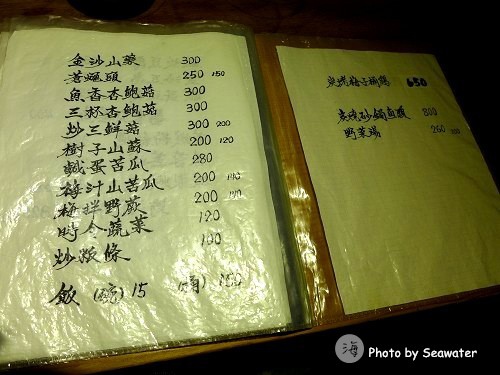 金沙山藥 300
蒼蠅頭 250 150
魚香杏鮑菇 300
三杯杏鮑菇 300
炒三鮮菇 300 200
樹子山蘇 200 120
鹹蛋苦瓜 280
梅汁山苦瓜 200 140
梅拌野蕨 200 120
時令蔬菜 120
炒粄條 100
飯 (碗) 15 (桶) 150
炭燒梅子桶雞 650
炭燒砂鍋魚頭 800
野菜湯 260
海 Photo by Seawater